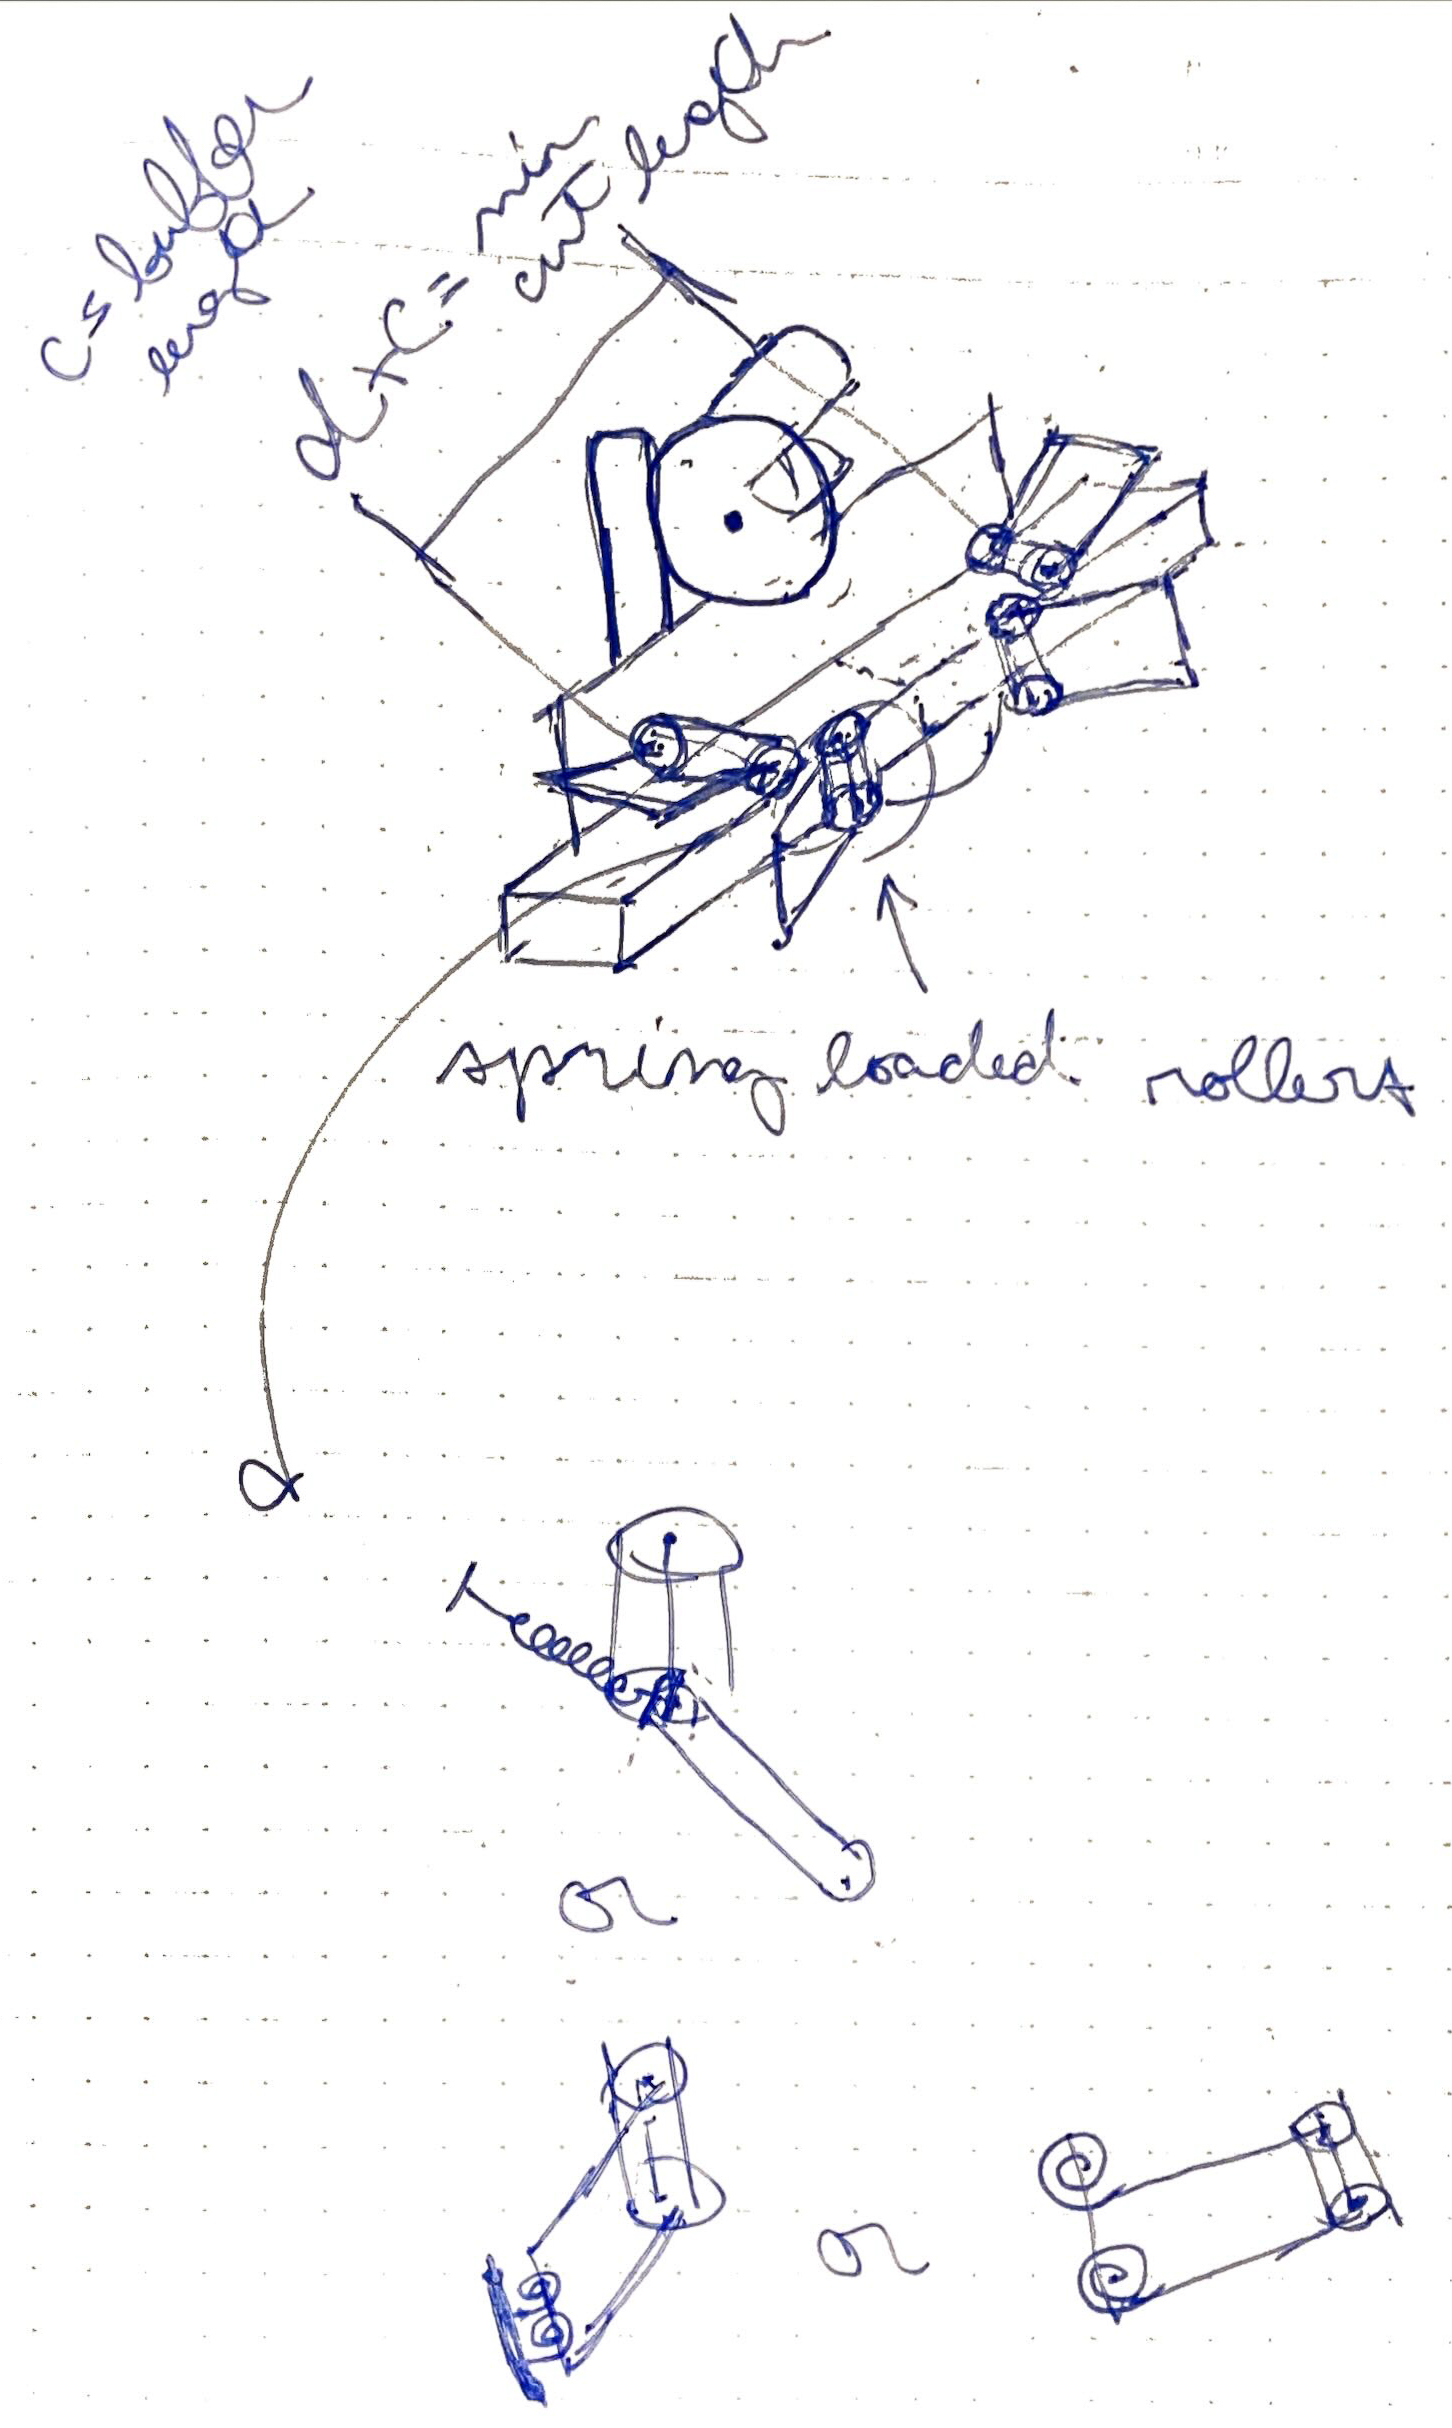 C = buffer
length
d + C = min
cut length
spring loaded rollers
α
or
or